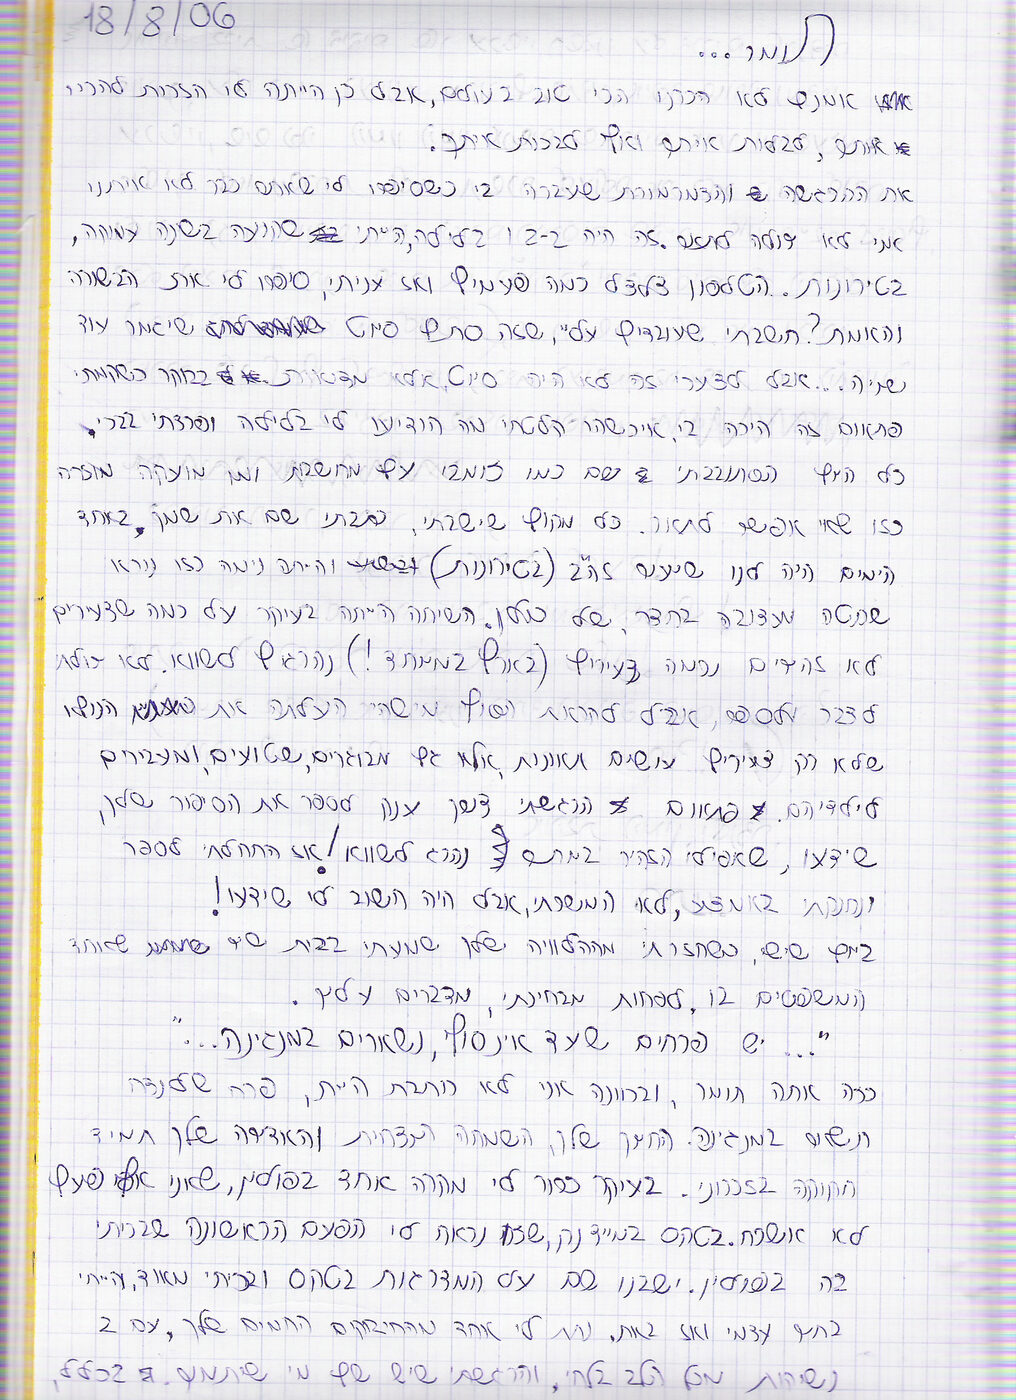 18/8/06
תומר...
אומנם לא הכרנו הכי טוב בעולם, אבל כן הייתה לי הזכות להכיר
אותך, לבלות איתך ואף לבכות איתך.
את ההרגשה והצמרמורת שעברה בי כשסיפרו לי שאתה כבר לא איתנו
אני לא יכולה לתאר. זה היה ב-2 בלילה, הייתי שקועה בשנה עמוקה,
בטירונות. הטלפון צלצל כמה פעמים ואז עניתי, סיפרו לי את הבשורה
והאמת? חשבתי שעובדים עליי, שזה סתם סיוט שיגמר עוד
שניה... אבל לצערי זה לא היה סיוט, אלא מציאות. בבוקר כשקמתי
פתאום זה היכה בי, איכשהו קלטתי מה הודיעו לי בלילה ופרצתי בבכי.
כל היום הסתובבתי שם כמו זומבי עם מחשבות ומן מועקה מוזרה
כזו שאי אפשר לתאר. כל מקום שישבתי, כתבתי שם את שמך, באחד
הימים היה לנו שיעור זה"ב (בטירונות) והייתה נימה כזו נורא
שקטה ועצובה בחדר, של כולן. השיחה הייתה בעיקר על כמה שצעירים
לא זהירים וכמה צעירים (בארץ במיוחד!) נהרגים לשווא. לא יכולתי
לדבר ולספר, אבל לקראת הסוף מישהי העלתה את הנושא
שלא רק צעירים עושים תאונות, אלא גם מבוגרים, שטועים, ומעבירים
לילדיהם. פתאום הרגשתי צורך ענק לספר את הסיפור שלך,
שידעו, שאפילו הזהיר במתים נהרג לשווא! אז התחלתי לספר
ונחנקתי באמצע, לא המשכתי, אבל היה חשוב לי שידעו!
ביום שישי, כשחזרתי מההלוויה שלך שמעתי בבית שיר שאחד
המשפטים בו, לפחות מבחינתי, מדברים עליך.
"... יש פרחים שעד אינסוף, נשארים במנגינה..."
כזה אתה תומר, ובכוונה אני לא כותבת היית, פרח שלנצח
תישאר במנגינה. החיוך שלך, השמחה הנצחית והאדישה שלך תמיד
חקוקה בזכרוני. בעיקר זכור לי מקרה אחד בפולין, שאני אף פעם
לא אשכח. בטקס במיידנק, שזו נראה לי הפעם הראשונה שבכיתי
בה בפולין. ישבנו שם על המדרגות בטקס ובכיתי מאוד, הייתי
בתוך עצמי ואז באת, נתת לי אחד מהחיבוקים החמים שלך, עם 2
נשיקות מכל הלב בלחי, והרגשתי שיש שם מי שיתמוך. בכלל,